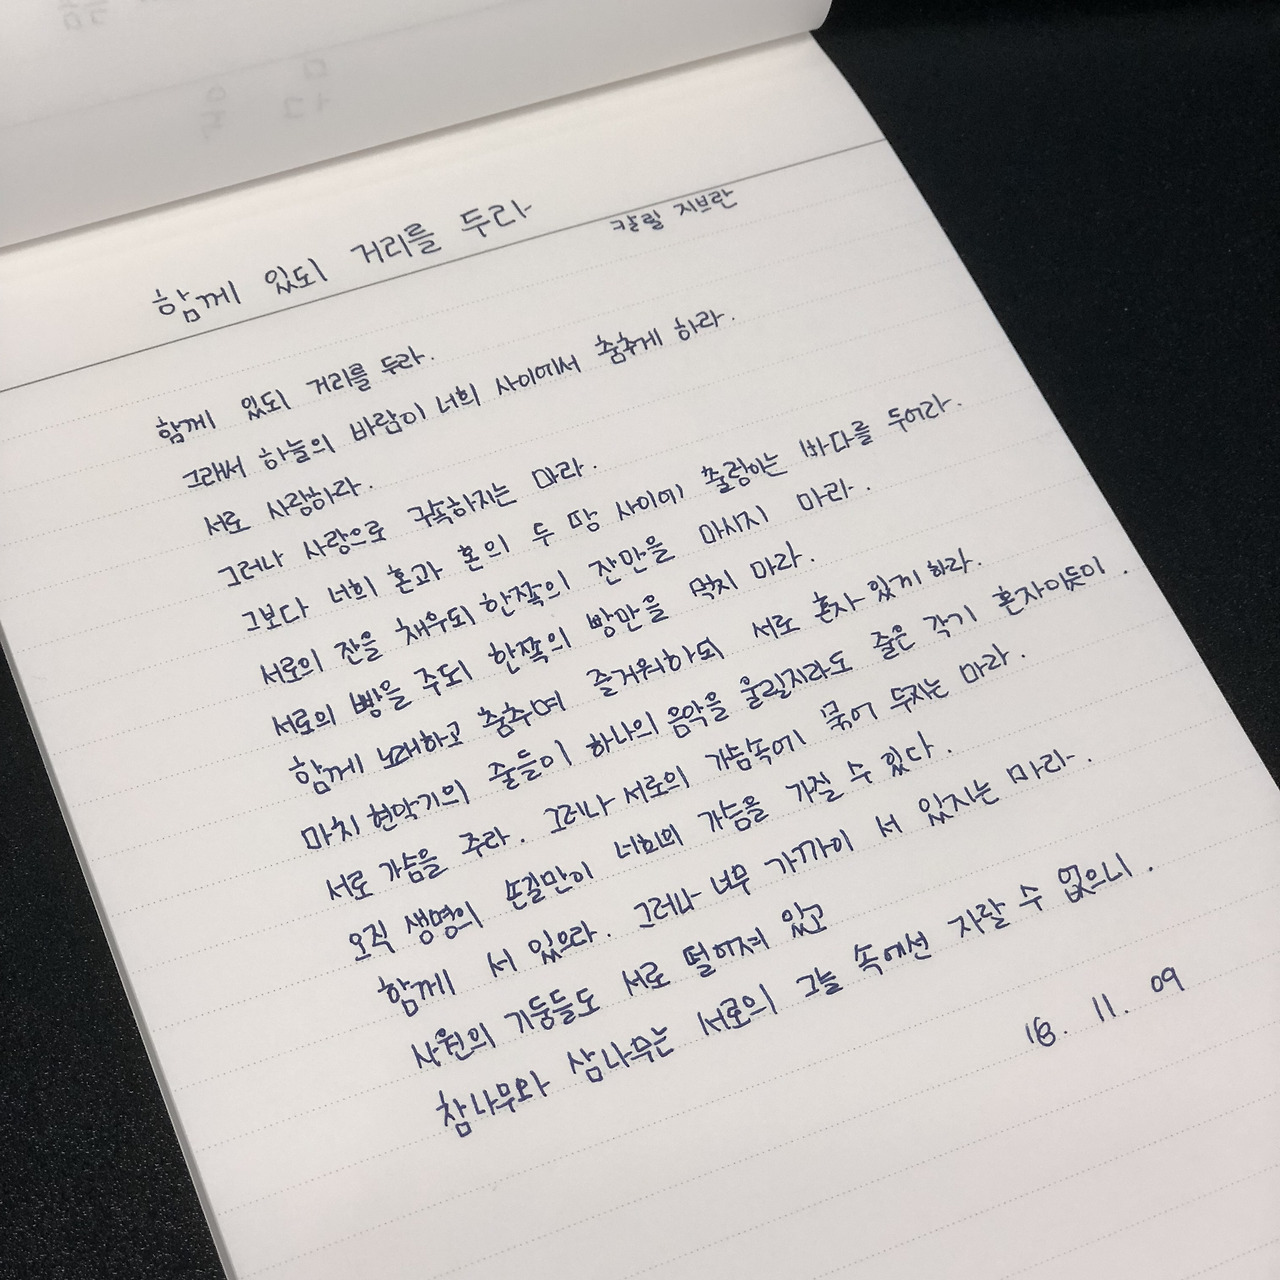 함께 있되 거리를 두라
칼릴 지브란
함께 있되 거리를 두라.
그래서 하늘의 바람이 너희 사이에서 춤추게 하라.
서로 사랑하라.
그러나 사랑으로 구속하지는 마라.
그보다 너희 혼과 혼의 두 땅 사이에 출렁이는 바다를 두어라.
서로의 잔을 채우되 한쪽의 잔만을 마시지 마라.
서로의 빵을 주되 한쪽의 빵만을 먹지 마라.
함께 노래하고 춤추며 즐거워하되 서로 혼자 있게 하라.
마치 현악기의 줄들이 하나의 음악을 울릴지라도 줄은 각기 혼자이듯이.
서로 가슴을 주라. 그러나 서로의 가슴속에 묶어 두지는 마라.
오직 생명의 손길만이 너희의 가슴을 가질 수 있다.
함께 서 있으라. 그러나 너무 가까이 서 있지는 마라.
사원의 기둥들도 서로 떨어져 있고
참나무와 삼나무는 서로의 그늘 속에선 자랄 수 없으니.
18. 11. 09